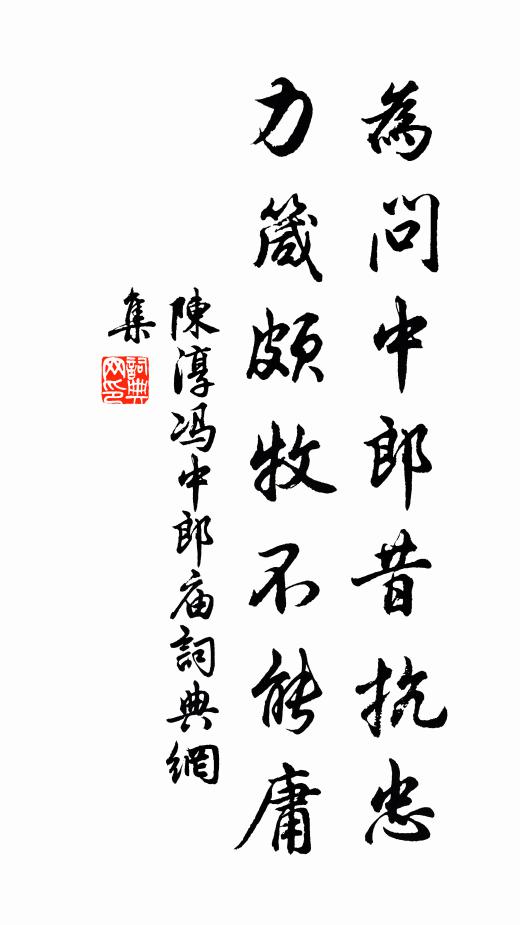 為問中郎昔抗忠
力箴頗牧不能庸
陳淳冯中郎庙詞典網
集
詞典
网印